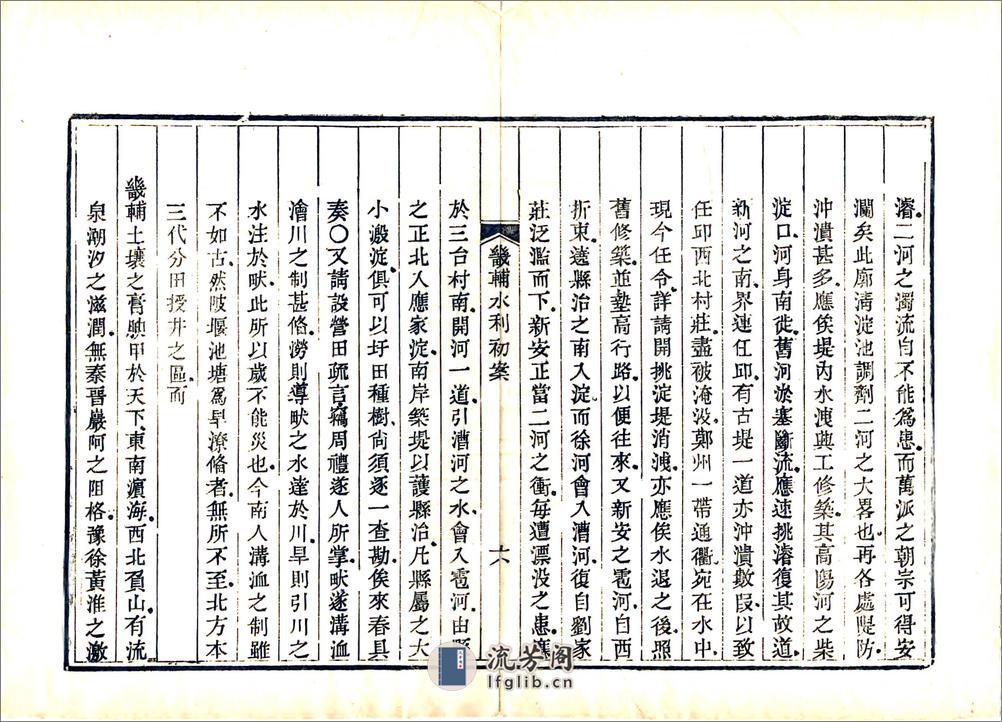 濬二河之濁流自不能為患而萬派之朝宗可得安
瀾矣此廓清淀池調劑二河之大畧也再各處隄防
沖潰甚多應俟堤內水洩興工修築其高陽河之柴
淀口河身南徙舊河淤塞斷流應速挑濬復其故道
新河之南界連任邱有古堤一道亦沖潰數段以致
任邱西北村莊盡被淹沒鄭州一帶通衢宛在水中
現今任令詳請開挑淀堤消洩亦應俟水退之後照
舊修築並墊高行路以便往來又新安之雹河自西
折東遶縣治之南入淀而徐河會入漕河復自劉家
莊泛濫而下新安正當二河之衝每遭漂沒之患應
畿輔水利初案
六
於三台村南開河一道引漕河之水會入雹河由縣
之正北入應家淀南岸築堤以護縣治凡縣屬之大
小澱淀俱可以圩田種樹尚須逐一查勘俟來春具
奏○又請設營田疏言竊周禮遂人所掌畎遂溝洫
澮川之制甚俻澇則導畎之水達於川旱則引川之
水注於畎此所以歲不能災也今南人溝洫之制雖
不如古然陂堰池塘為旱潦俻者無所不至北方本
三代分田授井之區而
畿輔土壤之膏腴甲於天下東南濵海西北負山有流
泉潮汐之滋潤無秦晉巖阿之阻格豫徐黃淮之激
流芳閣
lfglib.cn